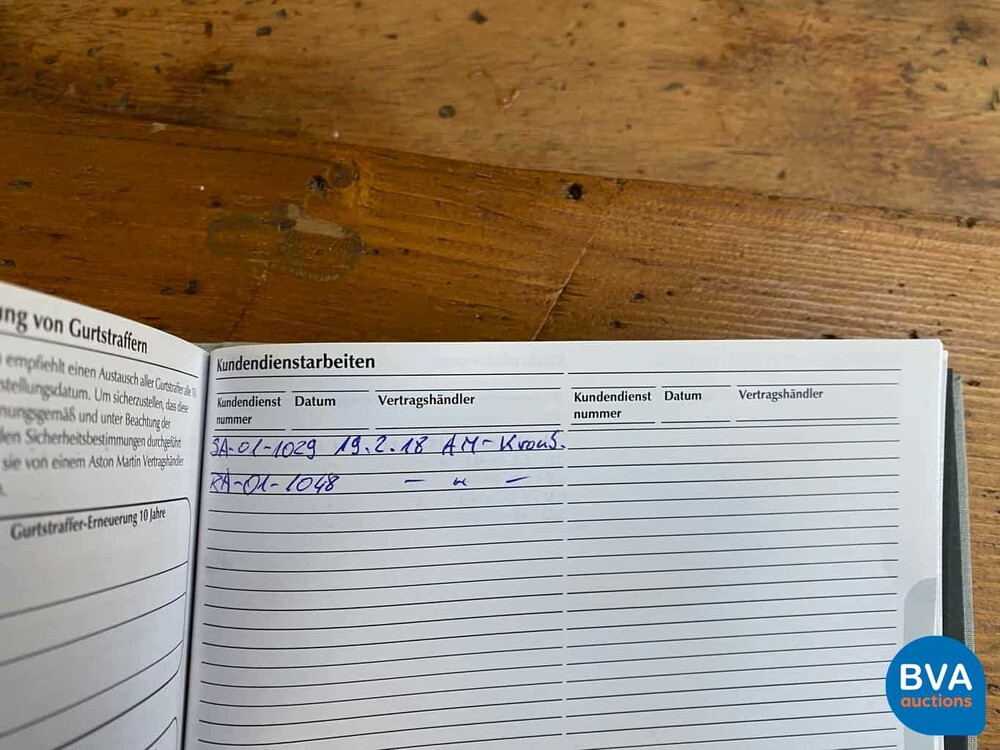 ng von Gurtstraffern
empfiehlt einen Austausch aller Gurtstraffer alle 10
stellungsdatum. Um sicherzustellen, dass diese
nungsgemäß und unter Beachtung der
len Sicherheitsbestimmungen durchgeführt
sie von einem Aston Martin Vertragshändler
Gurtstraffer-Erneuerung 10 Jahre
Kundendienstarbeiten
Kundendienst nummer Datum Vertragshändler
SA-01-1029 19.2.18 AM-Kraus.
RA-01-1048 — " —
Kundendienst nummer Datum Vertragshändler
BVA
auctions